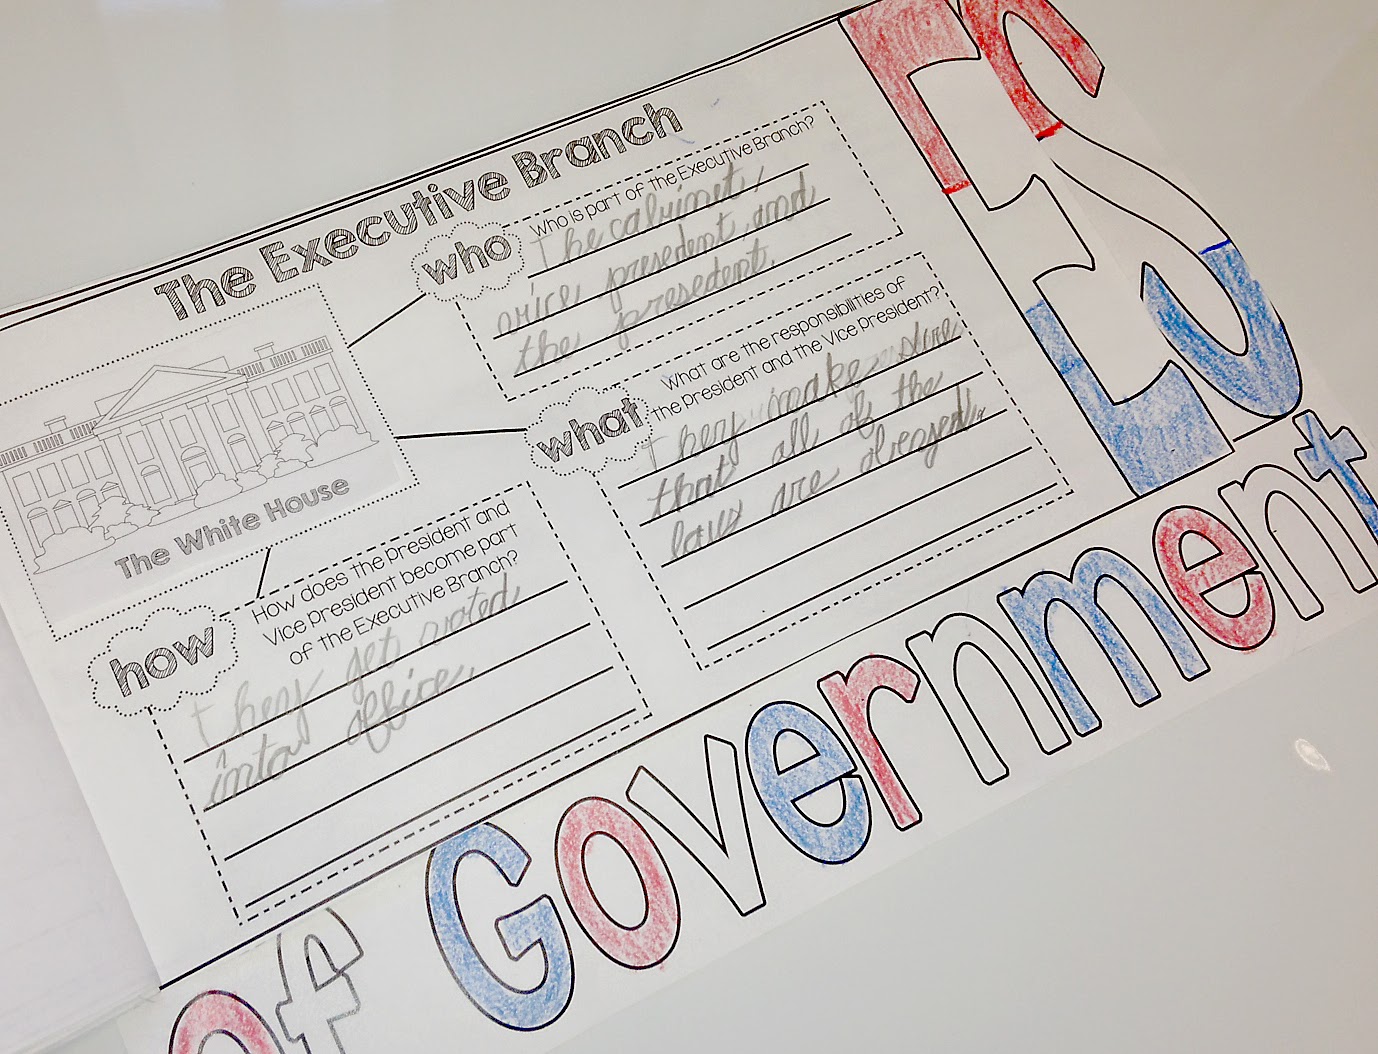 The Executive Branch
who
Who is part of the Executive Branch?
The cabinet,
vice presedent, and
the presedent.
The White House
what
What are the responsibilities of
the president and the Vice president?
They make shure
that all of the
laws are obeyed.
how
How does the President and
Vice President become part
of the Executive Branch?
They get voted
into office.
ES
of Government